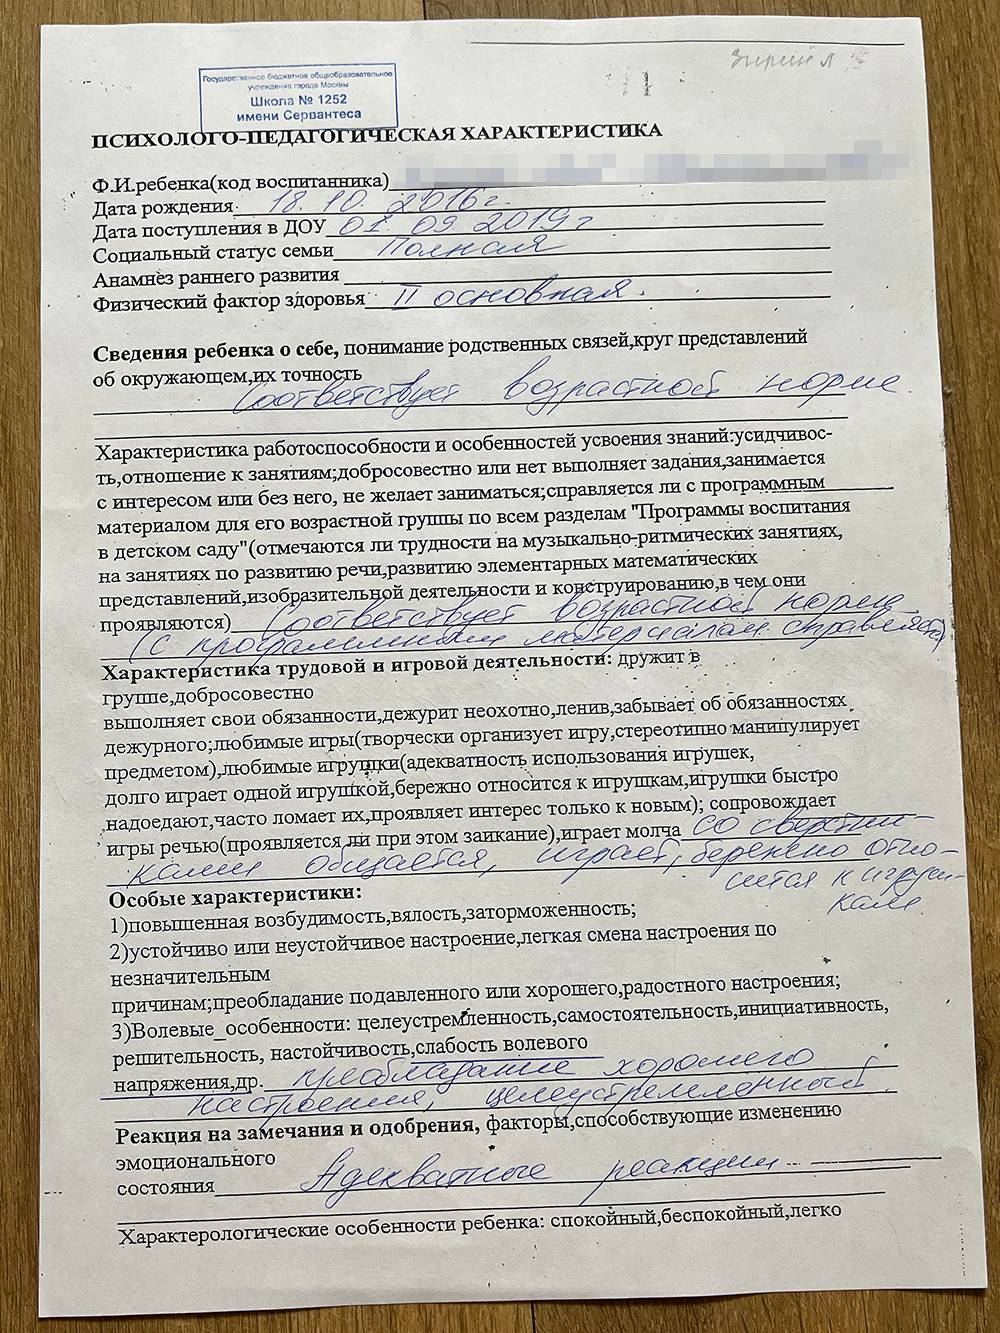 Государственное бюджетное общеобразовательное
учреждение города Москвы
Школа № 1252
имени Сервантеса
ПСИХОЛОГО-ПЕДАГОГИЧЕСКАЯ ХАРАКТЕРИСТИКА
Ф.И.ребенка(код воспитанника)
Дата рождения 18.10.2016г.
Дата поступления в ДОУ 01 09 2019г
Социальный статус семьи Полная
Анамнез раннего развития
Физический фактор здоровья II основная.
Сведения ребенка о себе, понимание родственных связей,круг представлений
об окружающем,их точность
Соответствует возрастной норме.
Характеристика работоспособности и особенностей усвоения знаний:усидчивос-
ть,отношение к занятиям;добросовестно или нет выполняет задания,занимается
с интересом или без него, не желает заниматься;справляется ли с программным
материалом для его возрастной группы по всем разделам "Программы воспитания
в детском саду"(отмечаются ли трудности на музыкально-ритмических занятиях,
на занятиях по развитию речи,развитию элементарных математических
представлений,изобразительной деятельности и конструированию,в чем они
проявляются) Соответствует возрастной норме
(с программным материалом справляется)
Характеристика трудовой и игровой деятельности: дружит в
группе,добросовестно
выполняет свои обязанности,дежурит неохотно,ленив,забывает об обязанностях
дежурного;любимые игры(творчески организует игру,стереотипно манипулирует
предметом),любимые игрушки(адекватность использования игрушек,
долго играет одной игрушкой,бережно относится к игрушкам,игрушки быстро
надоедают,часто ломает их,проявляет интерес только к новым); сопровождает
игры речью(проявляется ли при этом заикание),играет молча со сверстни-
ками общается, играет, бережно отно-
сится к игруш-
кам
Особые характеристики:
1)повышенная возбудимость,вялость,заторможенность;
2)устойчиво или неустойчивое настроение,легкая смена настроения по
незначительным
причинам;преобладание подавленного или хорошего,радостного настроения;
3)Волевые_особенности: целеустремленность,самостоятельность,инициативность,
решительность, настойчивость,слабость волевого
напряжения,др. преобладание хорошего
настроения, целеустремленный.
Реакция на замечания и одобрения, факторы,способствующие изменению
эмоционального
состояния Адекватные реакции
Характерологические особенности ребенка: спокойный,беспокойный,легко